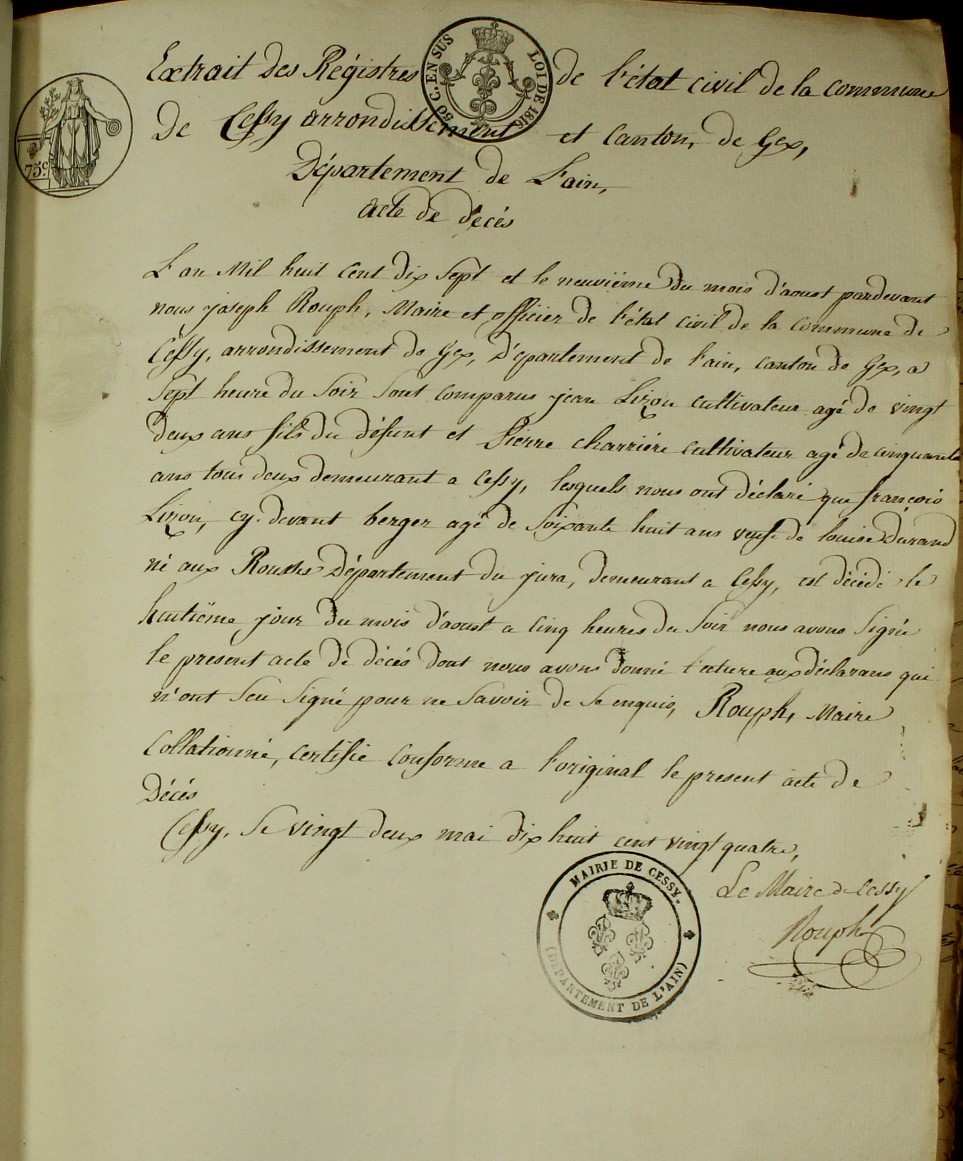 Extrait des Régistres de l'état civil de la commune
50 C. EN SUS LOI DE 1816
75c.
De Cessy arrondissement et canton, de Gex,
Département de l'ain,
acte de décés
L'an Mil huit cent dix sept et le neuviéme du mois d'aoust pardevant
nous joseph Rouph, Maire et officier de l'état civil de la commune de
Céssy, arrondissement de Gex, Département de l'ain, canton de Gex, a
sept heure du soir sont comparus jean Lizon cultivateur agé de vingt
deux ans fils du défunt et Pierre charriére cultivateur agé de cinquante
ans tous deux demeurant a Cessy, lesquels nous ont déclaré que françois
Lizon, cy-devant berger agé de soixante huit ans veuf de louise Durand
né aux Département du jura, demeurant a Cessy, est décédé le
huitiéme jour du mois d'aoust a cinq heures du soir nous avons signé
le présent acte de décés dont nous avons donné lecture aux déclarans qui
n'ont seu signé pour ne savoir de se enquis, Rouph, Maire
Collationné, certifié conforme a l'original le present acte de
Décés
Cessy, le vingt deux mai dix huit cent vingt quatre,
Le Maire de Cessy
Rouph
MAIRIE DE CESSY.
(DÉPARTEMENT DE L'AIN)